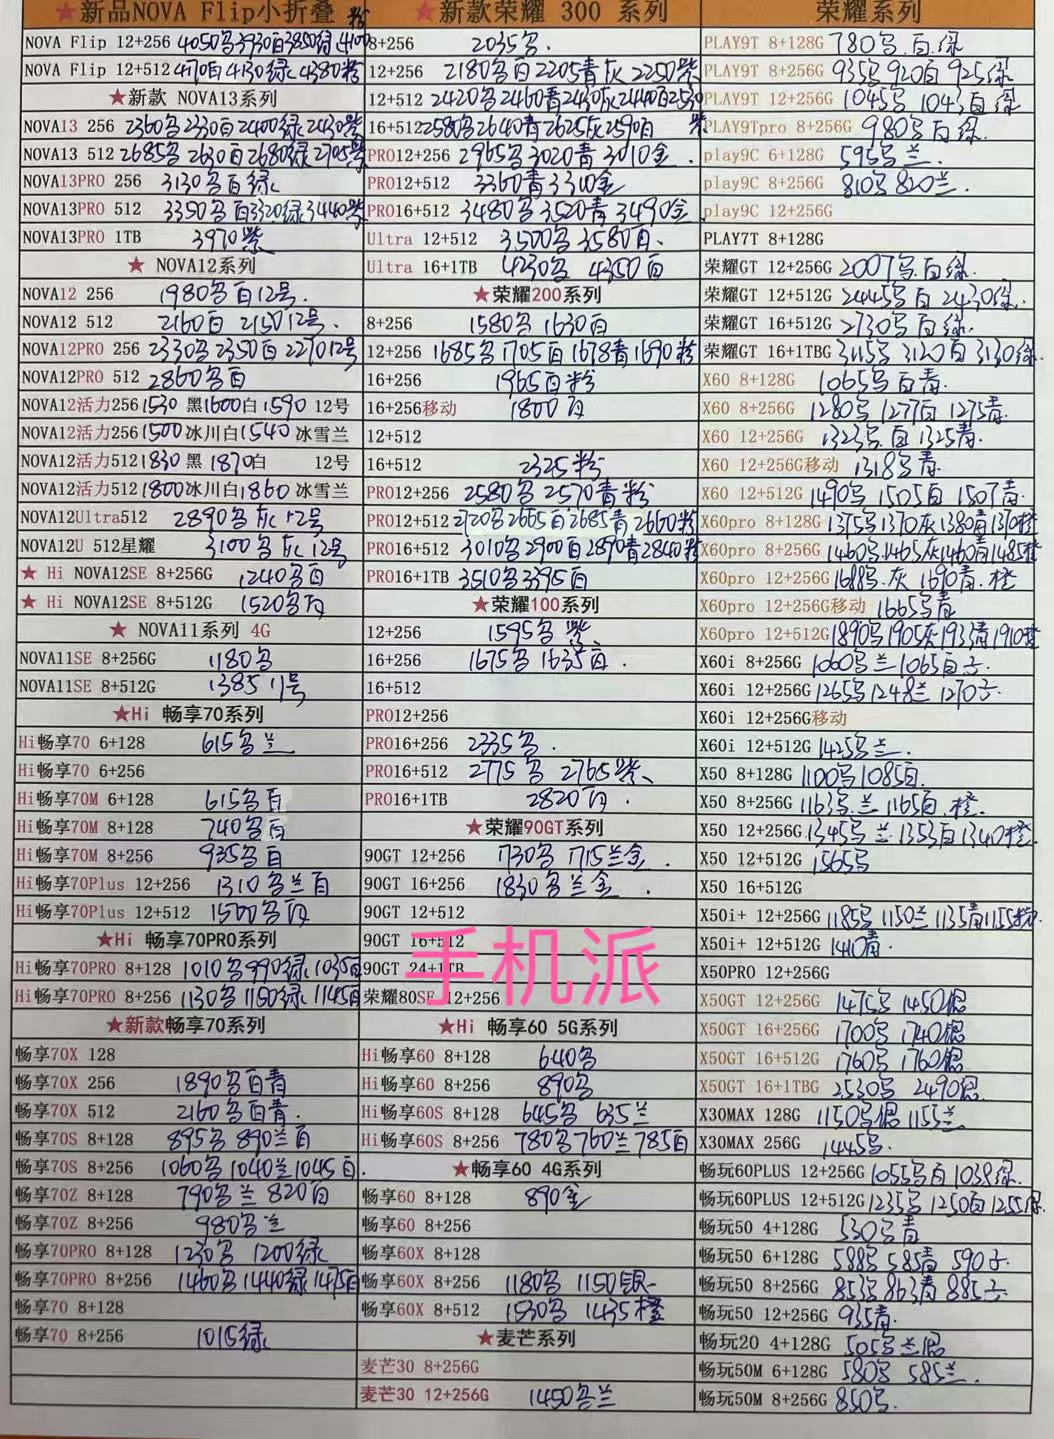 ★新品NOVA Flip小折叠 粉
NOVA Flip 12+256 4050名3930百3850绿4100
NOVA Flip 12+512 4170百4130绿4380粉
★新款 NOVA13系列
NOVA13 256 2360名2330百2400绿2430紫
NOVA13 512 2685名2630百2680绿2705紫
NOVA13PRO 256 3130名百绿
NOVA13PRO 512 3350名百3320绿3440紫
NOVA13PRO 1TB 3970紫
★ NOVA12系列
NOVA12 256 1980名百12号.
NOVA12 512 2160百 2150 12号.
NOVA12PRO 256 2330名2350百2270 12号
NOVA12PRO 512 2860名百
NOVA12活力256 1530 黑1600白1590 12号
NOVA12活力256 1500冰川白1540 冰雪兰
NOVA12活力512 1830 黑 1870白 12号
NOVA12活力512 1800冰川白1860 冰雪兰
NOVA12Ultra512 2890名灰12号
NOVA12U 512星耀 3100名灰12号
★ Hi NOVA12SE 8+256G 1240名百
★ Hi NOVA12SE 8+512G 1520名百
★ NOVA11系列 4G
NOVA11SE 8+256G 1180名
NOVA11SE 8+512G 1385 11号
★Hi 畅享70系列
Hi畅享70 6+128 615名兰
Hi畅享70 6+256
Hi畅享70M 6+128 615名百
Hi畅享70M 8+128 740名百
Hi畅享70M 8+256 935名百
Hi畅享70Plus 12+256 1310名兰百
Hi畅享70Plus 12+512 1500名百
★Hi 畅享70PRO系列
Hi畅享70PRO 8+128 1010名990绿1035百
Hi畅享70PRO 8+256 1130名1150绿1145百
★新款畅享70系列
畅享70X 128
畅享70X 256 1890名百青
畅享70X 512 2160名百青.
畅享70S 8+128 895名890兰百
畅享70S 8+256 1060名1040兰1045百.
畅享70Z 8+128 790名兰 820百
畅享70Z 8+256 980名兰
畅享70PRO 8+128 1230名 1200绿
畅享70PRO 8+256 1460名1440绿1475百
畅享70 8+128
畅享70 8+256 1015绿
★新款荣耀 300 系列
8+256 2035名.
12+256 2180名百2205青灰2250紫
12+512 2420名2460青2430灰2440百2530紫
16+512 2580名2640青2625灰2590百
PRO12+256 2965名3020青3010金.
PRO12+512 3360青3310金
PRO16+512 3480名3520青3490金
Ultra 12+512 3500名3580百.
Ultra 16+1TB 4230名 4350百
★荣耀200系列
8+256 1580名1630百
12+256 1685名1705百1678青1690粉
16+256 1965百粉
16+256移动 1800百
12+512
16+512 2325粉
PRO12+256 2580名2570青粉
PRO12+512 2720名2665百2685青2660粉
PRO16+512 3010名2900百2890青2840粉
PRO16+1TB 3510名3395百
★荣耀100系列
12+256 1595名紫.
16+256 1675名1635百.
16+512
PRO12+256
PRO16+256 2335名.
PRO16+512 2775名 2765紫.
PRO16+1TB 2820百.
★荣耀90GT系列
90GT 12+256 1730名1715兰金.
90GT 16+256 1830名兰金.
90GT 12+512
90GT 16+512
90GT 24+1TB
荣耀80SE 12+256
手机派
★Hi 畅享60 5G系列
Hi畅享60 8+128 640名
Hi畅享60 8+256 890名
Hi畅享60S 8+128 645名 635兰
Hi畅享60S 8+256 780名760兰785百
★畅享60 4G系列
畅享60 8+128 890金
畅享60 8+256
畅享60X 8+128
畅享60X 8+256 1180名 1150银
畅享60X 8+512 1530名 1435橙
★麦芒系列
麦芒30 8+256G
麦芒30 12+256G 1450名兰
荣耀系列
PLAY9T 8+128G 780名.百.绿
PLAY9T 8+256G 935名920百925绿
PLAY9T 12+256G 1045名 1043百绿
PLAY9Tpro 8+256G 980名百绿.
play9C 6+128G 595名兰.
play9C 8+256G 810名820兰.
play9C 12+256G
PLAY7T 8+128G
荣耀GT 12+256G 2007名.百.绿.
荣耀GT 12+512G 2445名百2430绿.
荣耀GT 16+512G 2730名百绿.
荣耀GT 16+1TBG 3115名3120百3130绿
X60 8+128G 1065名百青.
X60 8+256G 1280名1277百1275青.
X60 12+256G 1323名.百1325青.
X60 12+256G移动 1318名青.
X60 12+512G 1490名1505百1507青.
X60pro 8+128G 1375名1370灰1380青1370橙
X60pro 8+256G 1460名1465灰1460青1485橙
X60pro 12+256G 1688名.灰1690青.橙
X60pro 12+256G移动 1665名青
X60pro 12+512G 1890名1905灰1933青1910橙
X60i 8+256G 1060名兰1065百子.
X60i 12+256G 1265名1248兰1270子.
X60i 12+256G移动
X60i 12+512G 1425名兰.
X50 8+128G 1100名1085百.
X50 8+256G 1163名.兰1165百.橙.
X50 12+256G 1345名兰1353百1340橙
X50 12+512G 1565名
X50 16+512G
X50i+ 12+256G 1185名1150兰1135青1155粉.
X50i+ 12+512G 1410青.
X50PRO 12+256G
X50GT 12+256G 1475名1450银
X50GT 16+256G 1700名 1740银
X50GT 16+512G 1760名 1760银
X50GT 16+1TBG 2530名 2490银
X30MAX 128G 1150名银1155兰
X30MAX 256G 1445名.
畅玩60PLUS 12+256G 1055名百1038绿.
畅玩60PLUS 12+512G 1235名1250百1255绿.
畅玩50 4+128G 530名青
畅玩50 6+128G 588名585青590子
畅玩50 8+256G 853名863青885子.
畅玩50 12+256G 935青.
畅玩20 4+128G 505名兰银
畅玩50M 6+128G 580名 585兰.
畅玩50M 8+256G 850名.